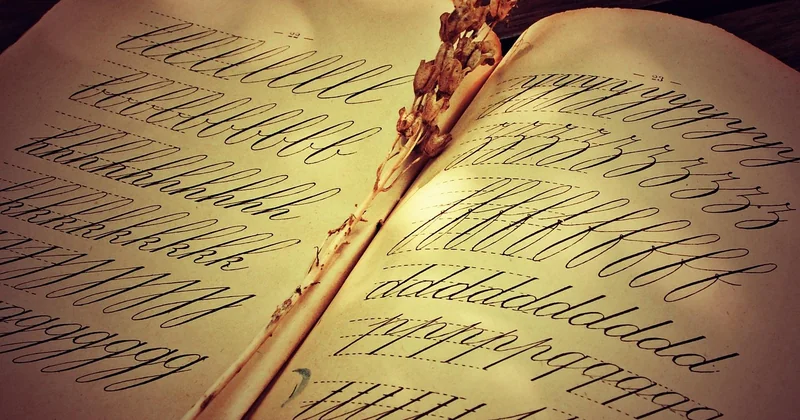 22
lllllllllll
bbbbbbbbbb
hhhhhhhhhhh
kkkkkkkkkk
jjjjjjjjj
ggggggggg
23
yyyyyyyyyyyy
zzzzzzzzzz
fffffffffff
ddddddddddddd
ppppppqqqqqq